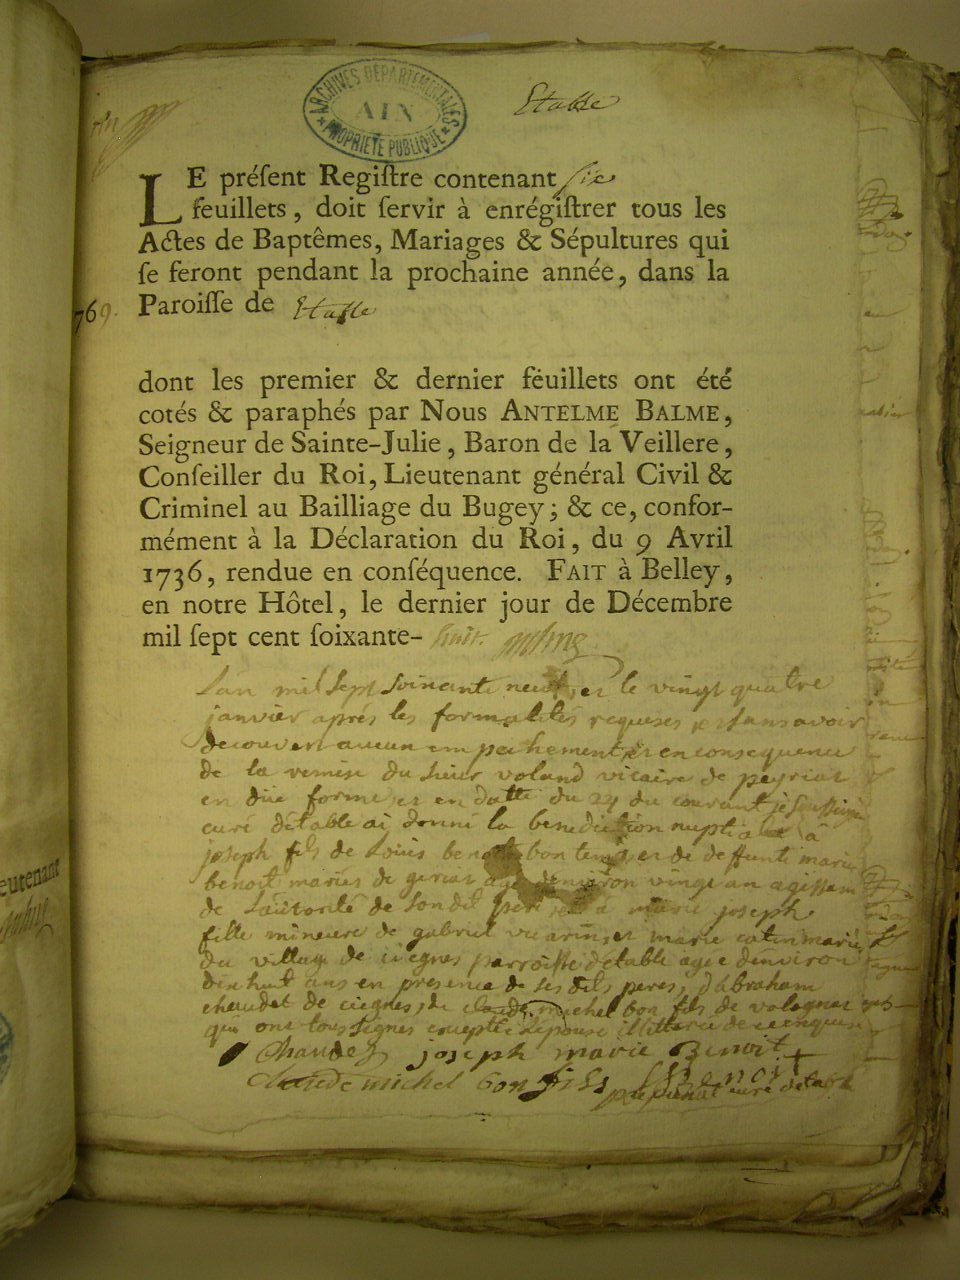 ARCHIVES DÉPARTEMENTALES
AIN
* PROPRIÉTÉ PUBLIQUE *
Etable
LE préſent Regiſtre contenant six
feuillets, doit ſervir à enrégiſtrer tous les
Actes de Baptêmes, Mariages & Sépultures qui
ſe feront pendant la prochaine année, dans la
769. Paroiſſe de Etable
dont les premier & dernier feuillets ont été
cotés & paraphés par Nous ANTELME BALME,
Seigneur de Sainte-Julie, Baron de la Veillere,
Conſeiller du Roi, Lieutenant général Civil &
Criminel au Bailliage du Bugey; & ce, confor-
mément à la Déclaration du Roi, du 9 Avril
1736, rendue en conſéquence. FAIT à Belley,
en notre Hôtel, le dernier jour de Décembre
mil ſept cent ſoixante- huit.
Lan mil sept soixante neuf, et le vingt quatre
janvier aprés les formalités requises, et sans avoir
decouvert aucun empechement, et en consequence
de la remise du sieur voland vicaire de peyriat
en düe forme, et en datte du 24 du courant, je soussigné
curé détable ai donné la benediction nuptiale à
joseph fils de Louis benoit bon tems, et de deffunte marie
benoit mariés de geriat agé denviron vingt an agissant
de Lautorité de Son dit pere, et à marie joseph
fille mineure de gabriel vuarin, et marie catin mariés
du village de ciegnes parroisse détable agée denviron
dix huit ans en presence de ses dits peres, dabraham
chaudet de ciegnes, de claude michel bon fils de volognat
qui ont tous signés excepté Lepouse illitterée de ce enquise
Chaudet joseph marie Benoit
Claude michel bon fils L benoit
curé détable
eutenant